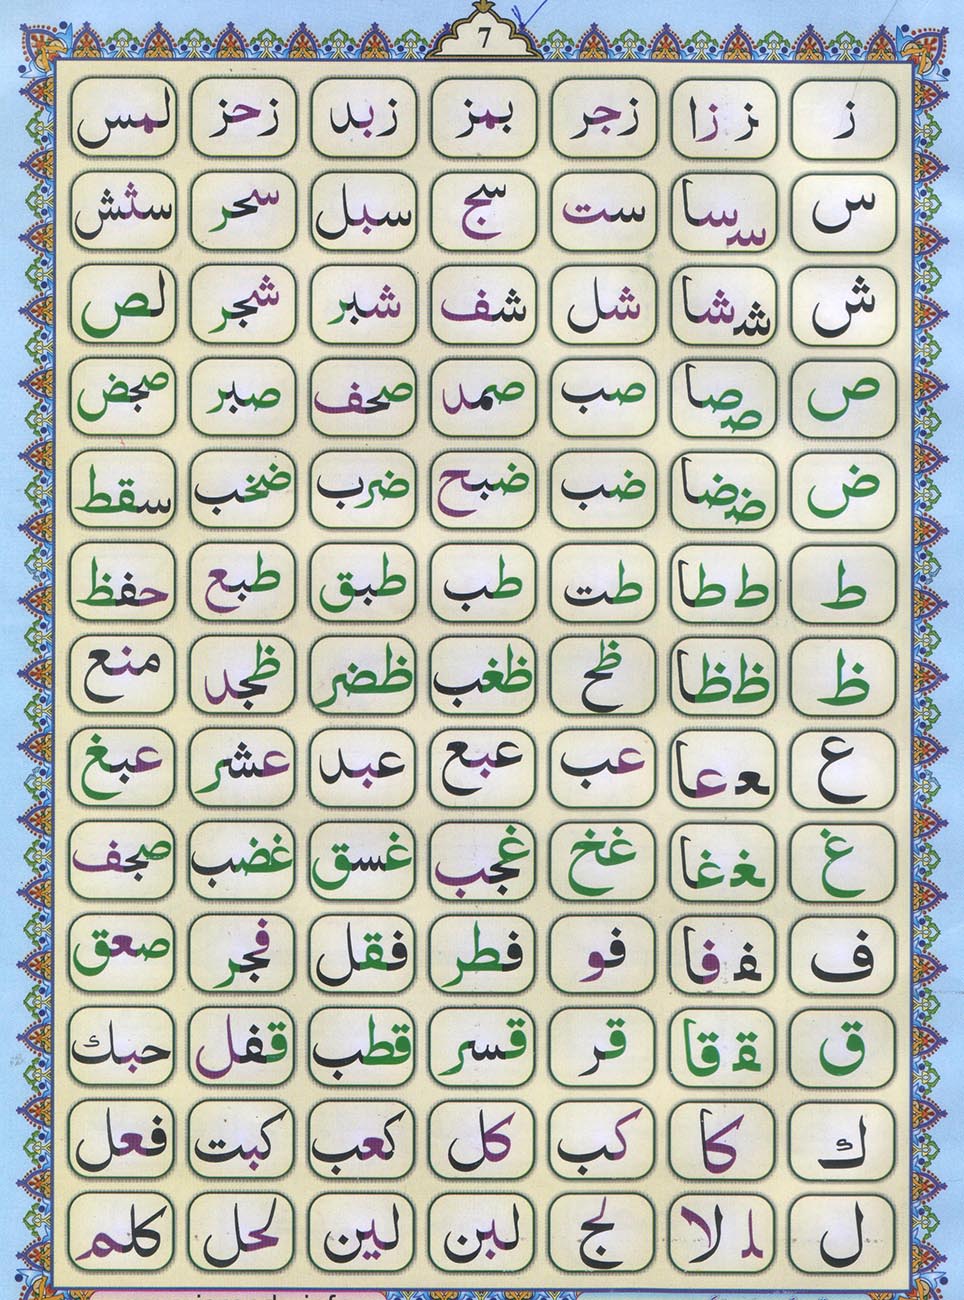 7
ز ز زا زجر بمز زبد زحز لمس
س سـ سا ست سج سبل سحر سثش
ش شـ شا شل شف شبر شجر لص
ص صـ صا صب صمد صحف صبر صجض
ض ضـ ضا ضب ضبح ضرب ضخب سقط
ط ط طا طت طب طبق طبع حفظ
ظ ظ ظا ظخ ظغب ظضر ظجد منع
ع ـعـ عا عب عبع عبد عشر عبغ
غ ـغـ غا غخ غجب غسق غضب صجف
ف ـفـ فا فو فطر فقل فجر صعق
ق ـقـ قا قر قسر قطب قفل حبك
ك كا كب كل كعب كبت فعل
ل لـ لا لج لبن لين لحل كلم